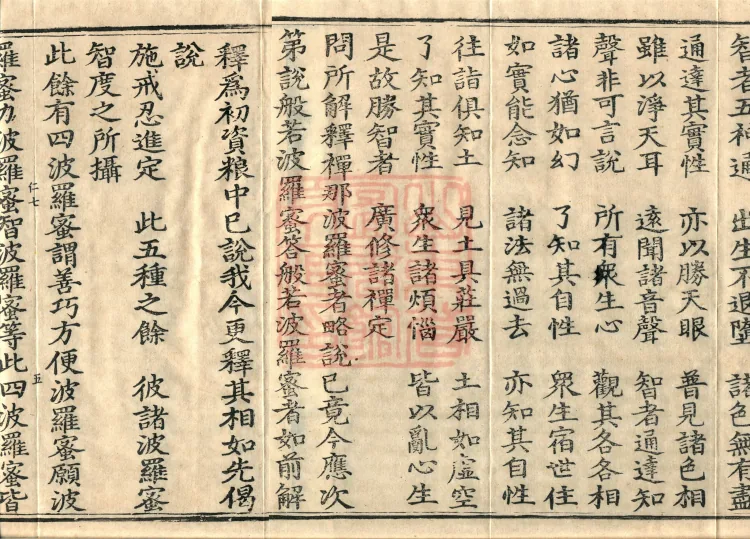 智者五神通　出生不退墮　諸色無有盡
通達其實性　亦以勝天眼　普見諸色相
雖以淨天耳　遠聞諸音聲　智者通達知
聲非可言說　所有衆生心　觀其各各相
諸心猶如幻　了知其自性　衆生宿世住
如實能念知　諸法無過去　亦知其自性
往詣俱知土　見土具莊嚴　土相如虛空
了知其實性　衆生諸煩惱　皆以亂心生
是故勝智者　廣修諸禪定
問所解釋禪那波羅蜜者略說已竟今應次
第說般若波羅蜜答般若波羅蜜者如前解
釋爲初資粮中已說我今更釋其相如先偈
說
施戒忍進定　此五種之餘　彼諸波羅蜜
智度之所攝
此餘有四波羅蜜謂善巧方便波羅蜜願波
仁七
五
羅蜜力波羅蜜智波羅蜜等此四波羅蜜皆